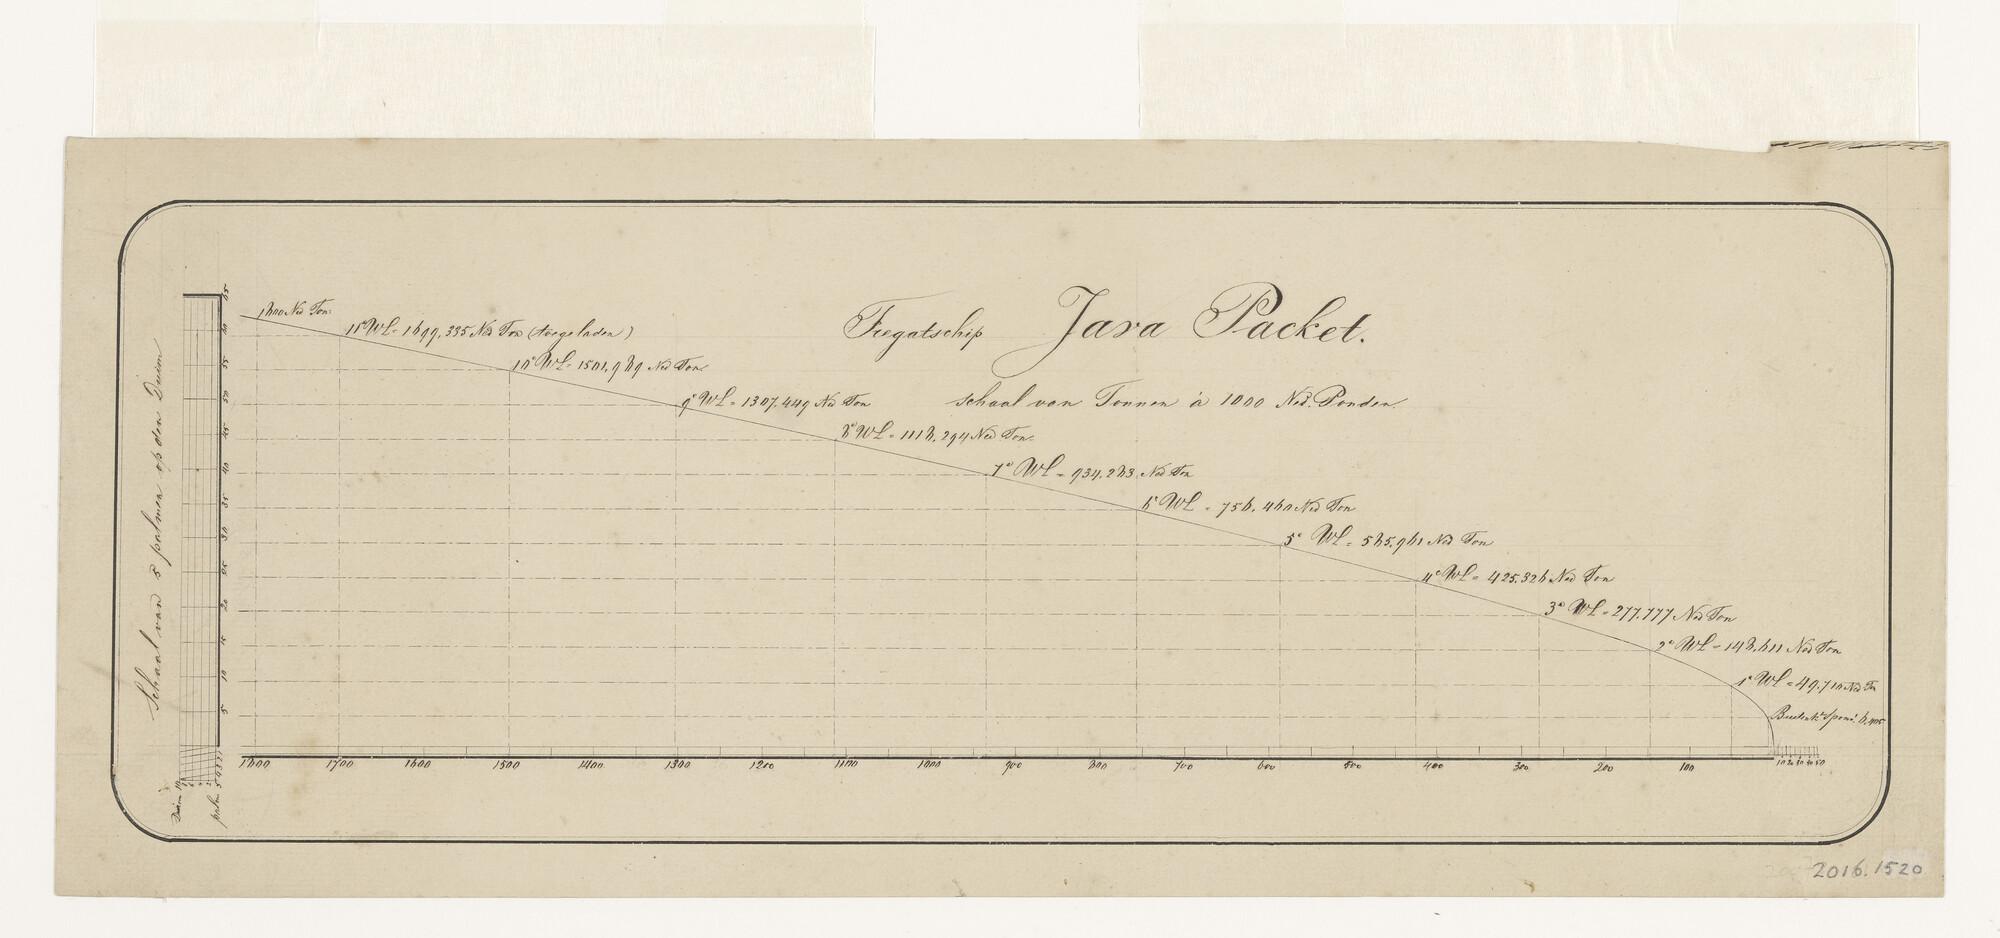 Fregatschip Java Packet.
schaal van Tonnen à 1000 Ned. Ponden.
1800 Ned Ton.
11e WL = 1699,335 Ned Ton (toegeladen)
10e WL = 1501,989 Ned Ton
9e WL = 1307.449 Ned Ton
8e WL = 1118,294 Ned Ton
7e WL = 934,283 Ned Ton
6e WL = 756,460 Ned Ton
5e WL = 585,961 Ned Ton
4e WL = 425.326 Ned Ton
3e WL = 277.777 Ned Ton
2e WL = 148.611 Ned Ton
1e WL = 49.710 Ned Tn
Schaal van 5 palmen op den Duim
65
60
55
50
45
40
35
30
25
20
15
10
5
1800 1700 1600 1500 1400 1300 1200 1100 1000 900 800 700 600 500 400 300 200 100 10 20 30 40 50
Duim 10
palm 5 4 3 2 1
2016.1520